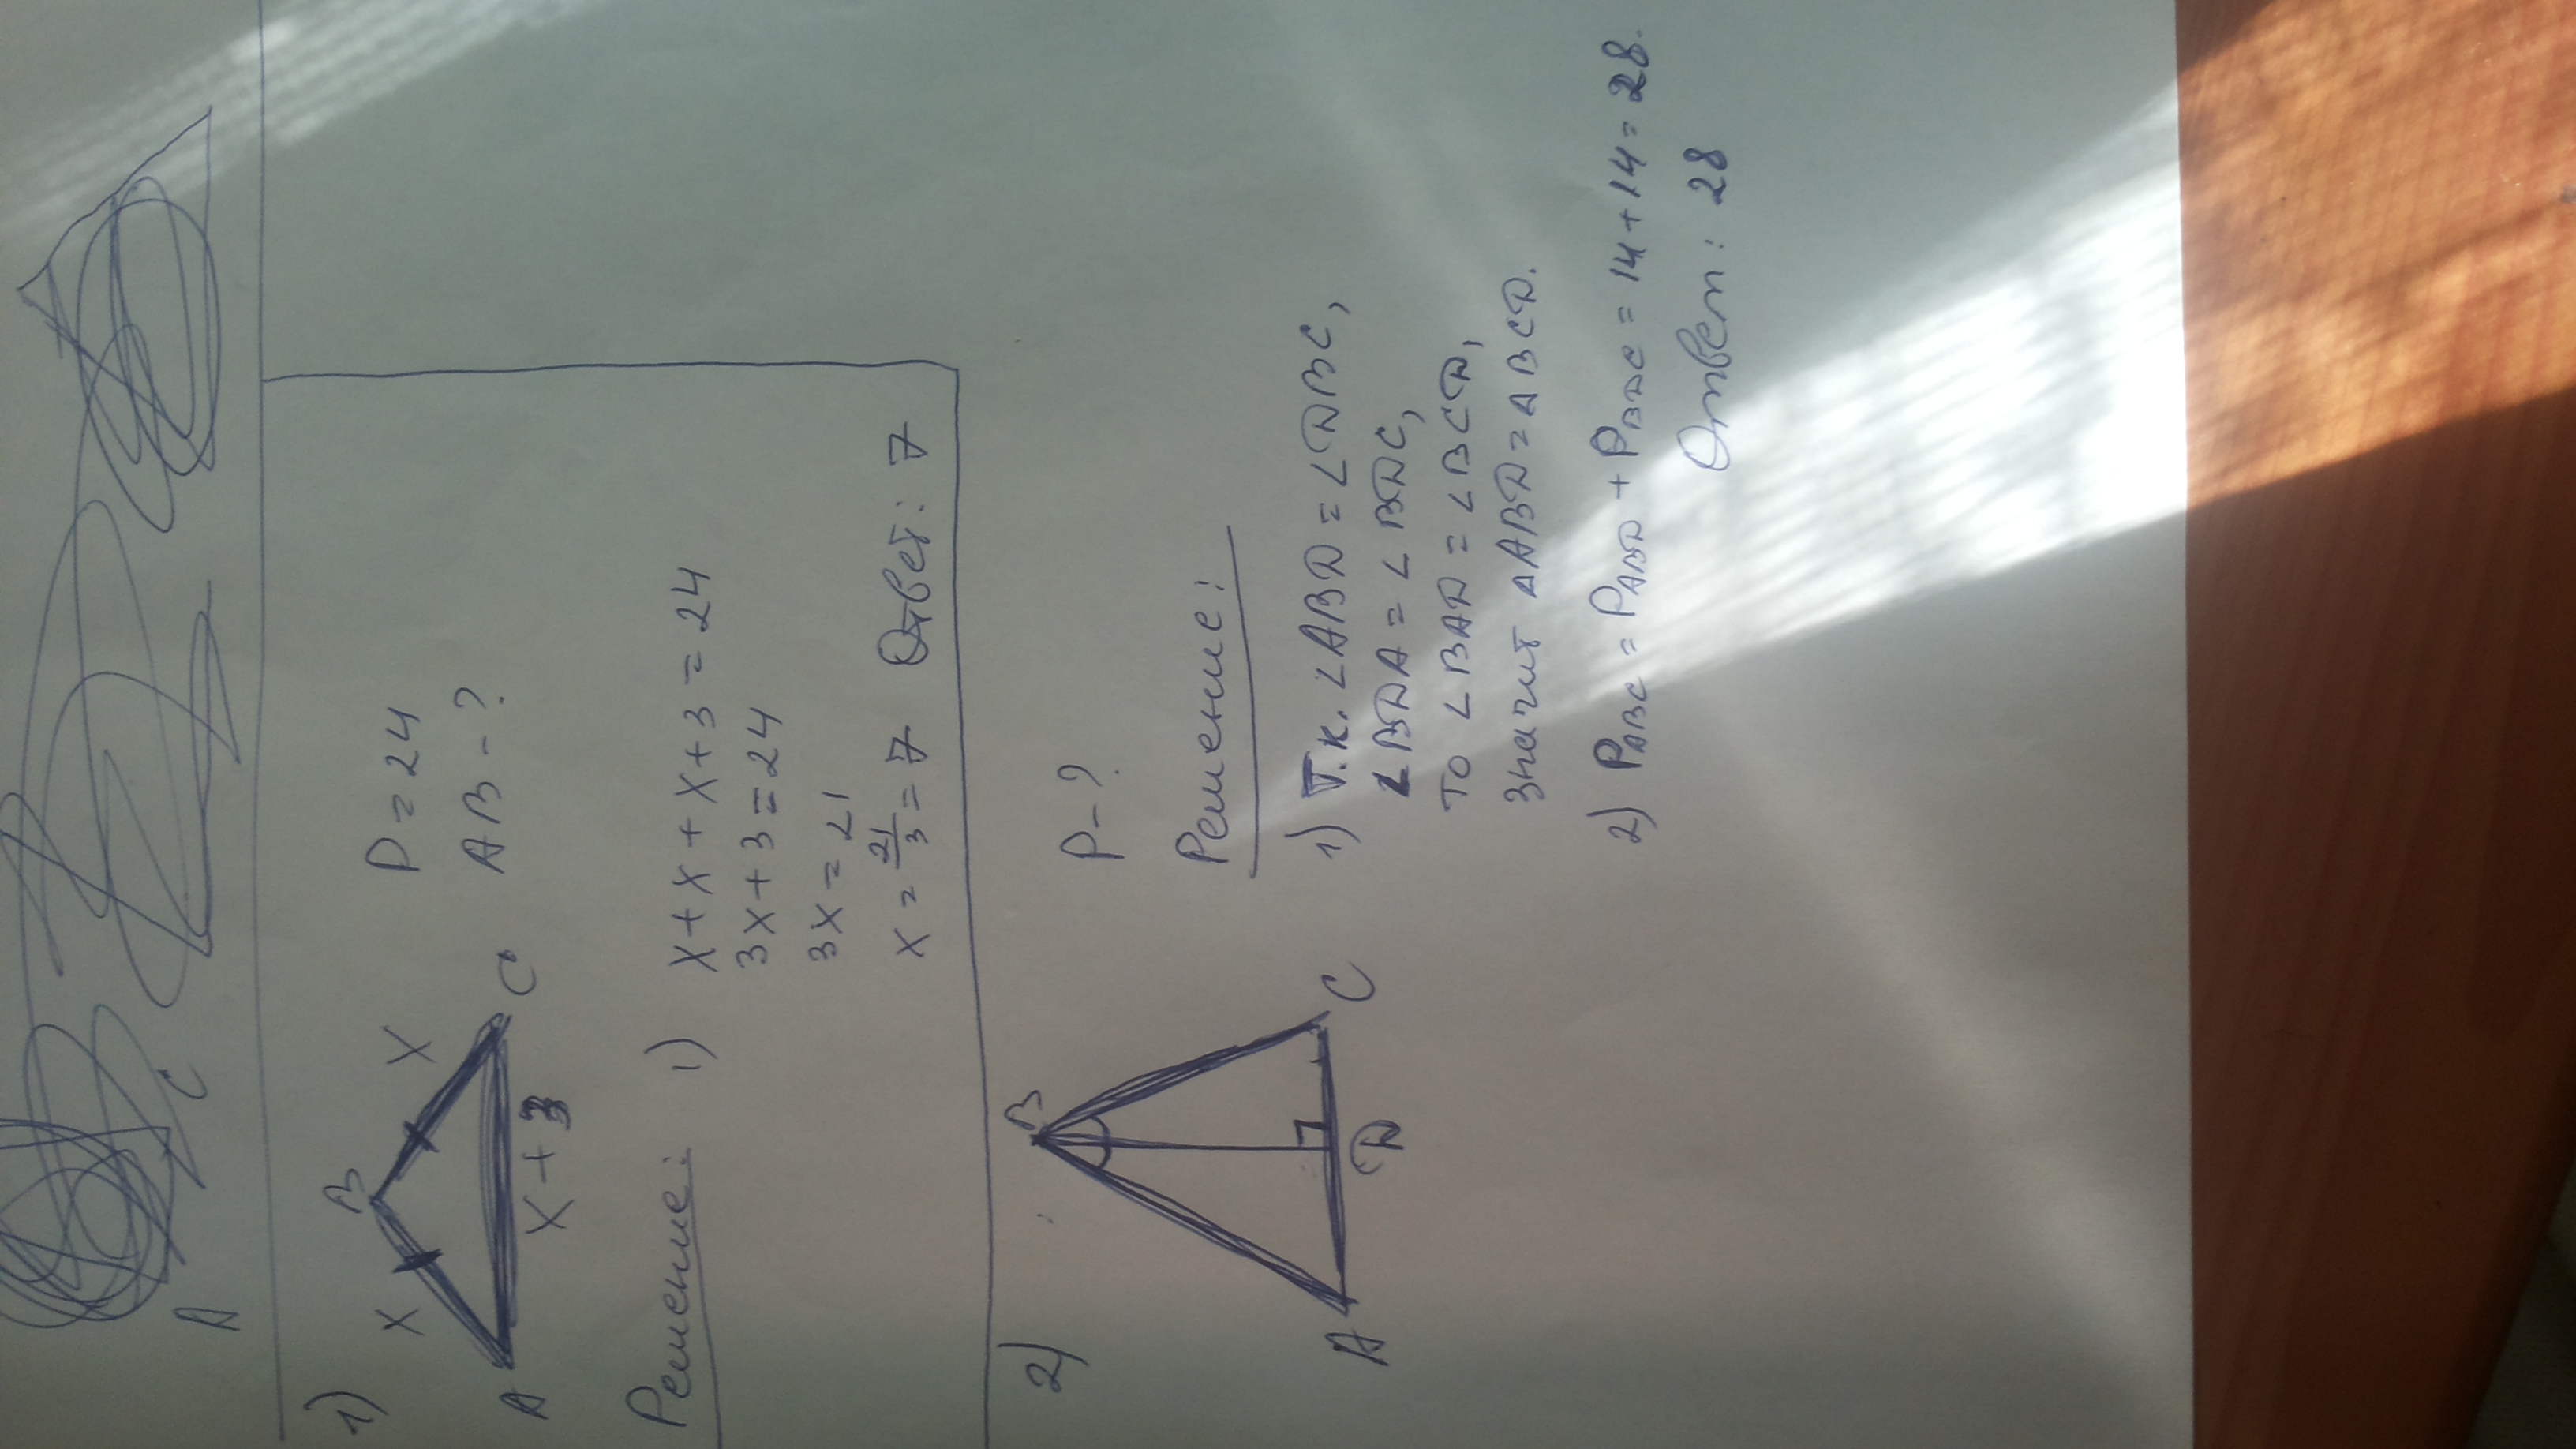 A
C
1)
B
X
X
P = 24
A
C
AB - ?
X + 3
Решение: 1) X + X + X + 3 = 24
3X + 3 = 24
3X = 21
X = 21/3 = 7 Ответ: 7
2)
B
P - ?
A
D
C
Решение:
1) Т.к. ∠ABD = ∠DBC,
∠BDA = ∠BDC,
то ∠BAD = ∠BCD,
значит ΔABD = ΔBCD.
2) PABC = PABD + PBDC = 14 + 14 = 28.
Ответ: 28